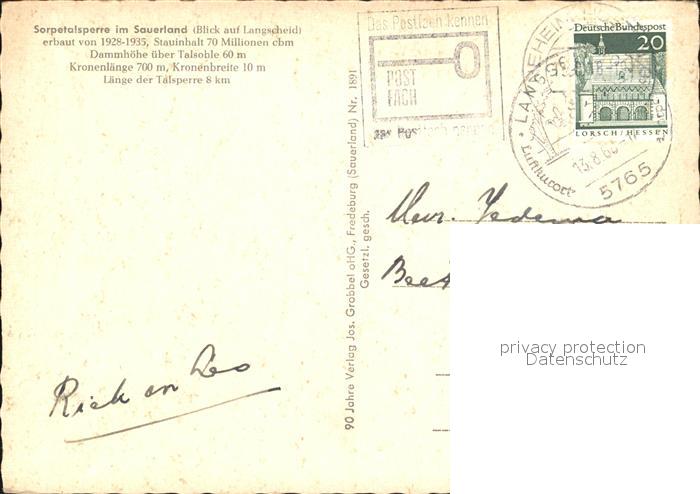 Sorpetalsperre im Sauerland (Blick auf Langscheid)
erbaut von 1928-1935, Stauinhalt 70 Millionen cbm
Dammhöhe über Talsohle 60 m
Kronenlänge 700 m, Kronenbreite 10 m
Länge der Talsperre 8 km
Das Postfach kennen
POST
FACH
das Postfach
Deutsche Bundespost
20
LORSCH/HESSEN
Luftkurort
13.8.
5765
90 Jahre Verlag Jos. Grobbel oHG., Fredeburg (Sauerland) Nr. 1891
Gesetzl. gesch.
Mevr.
Riek en Leo
privacy protection
Datenschutz